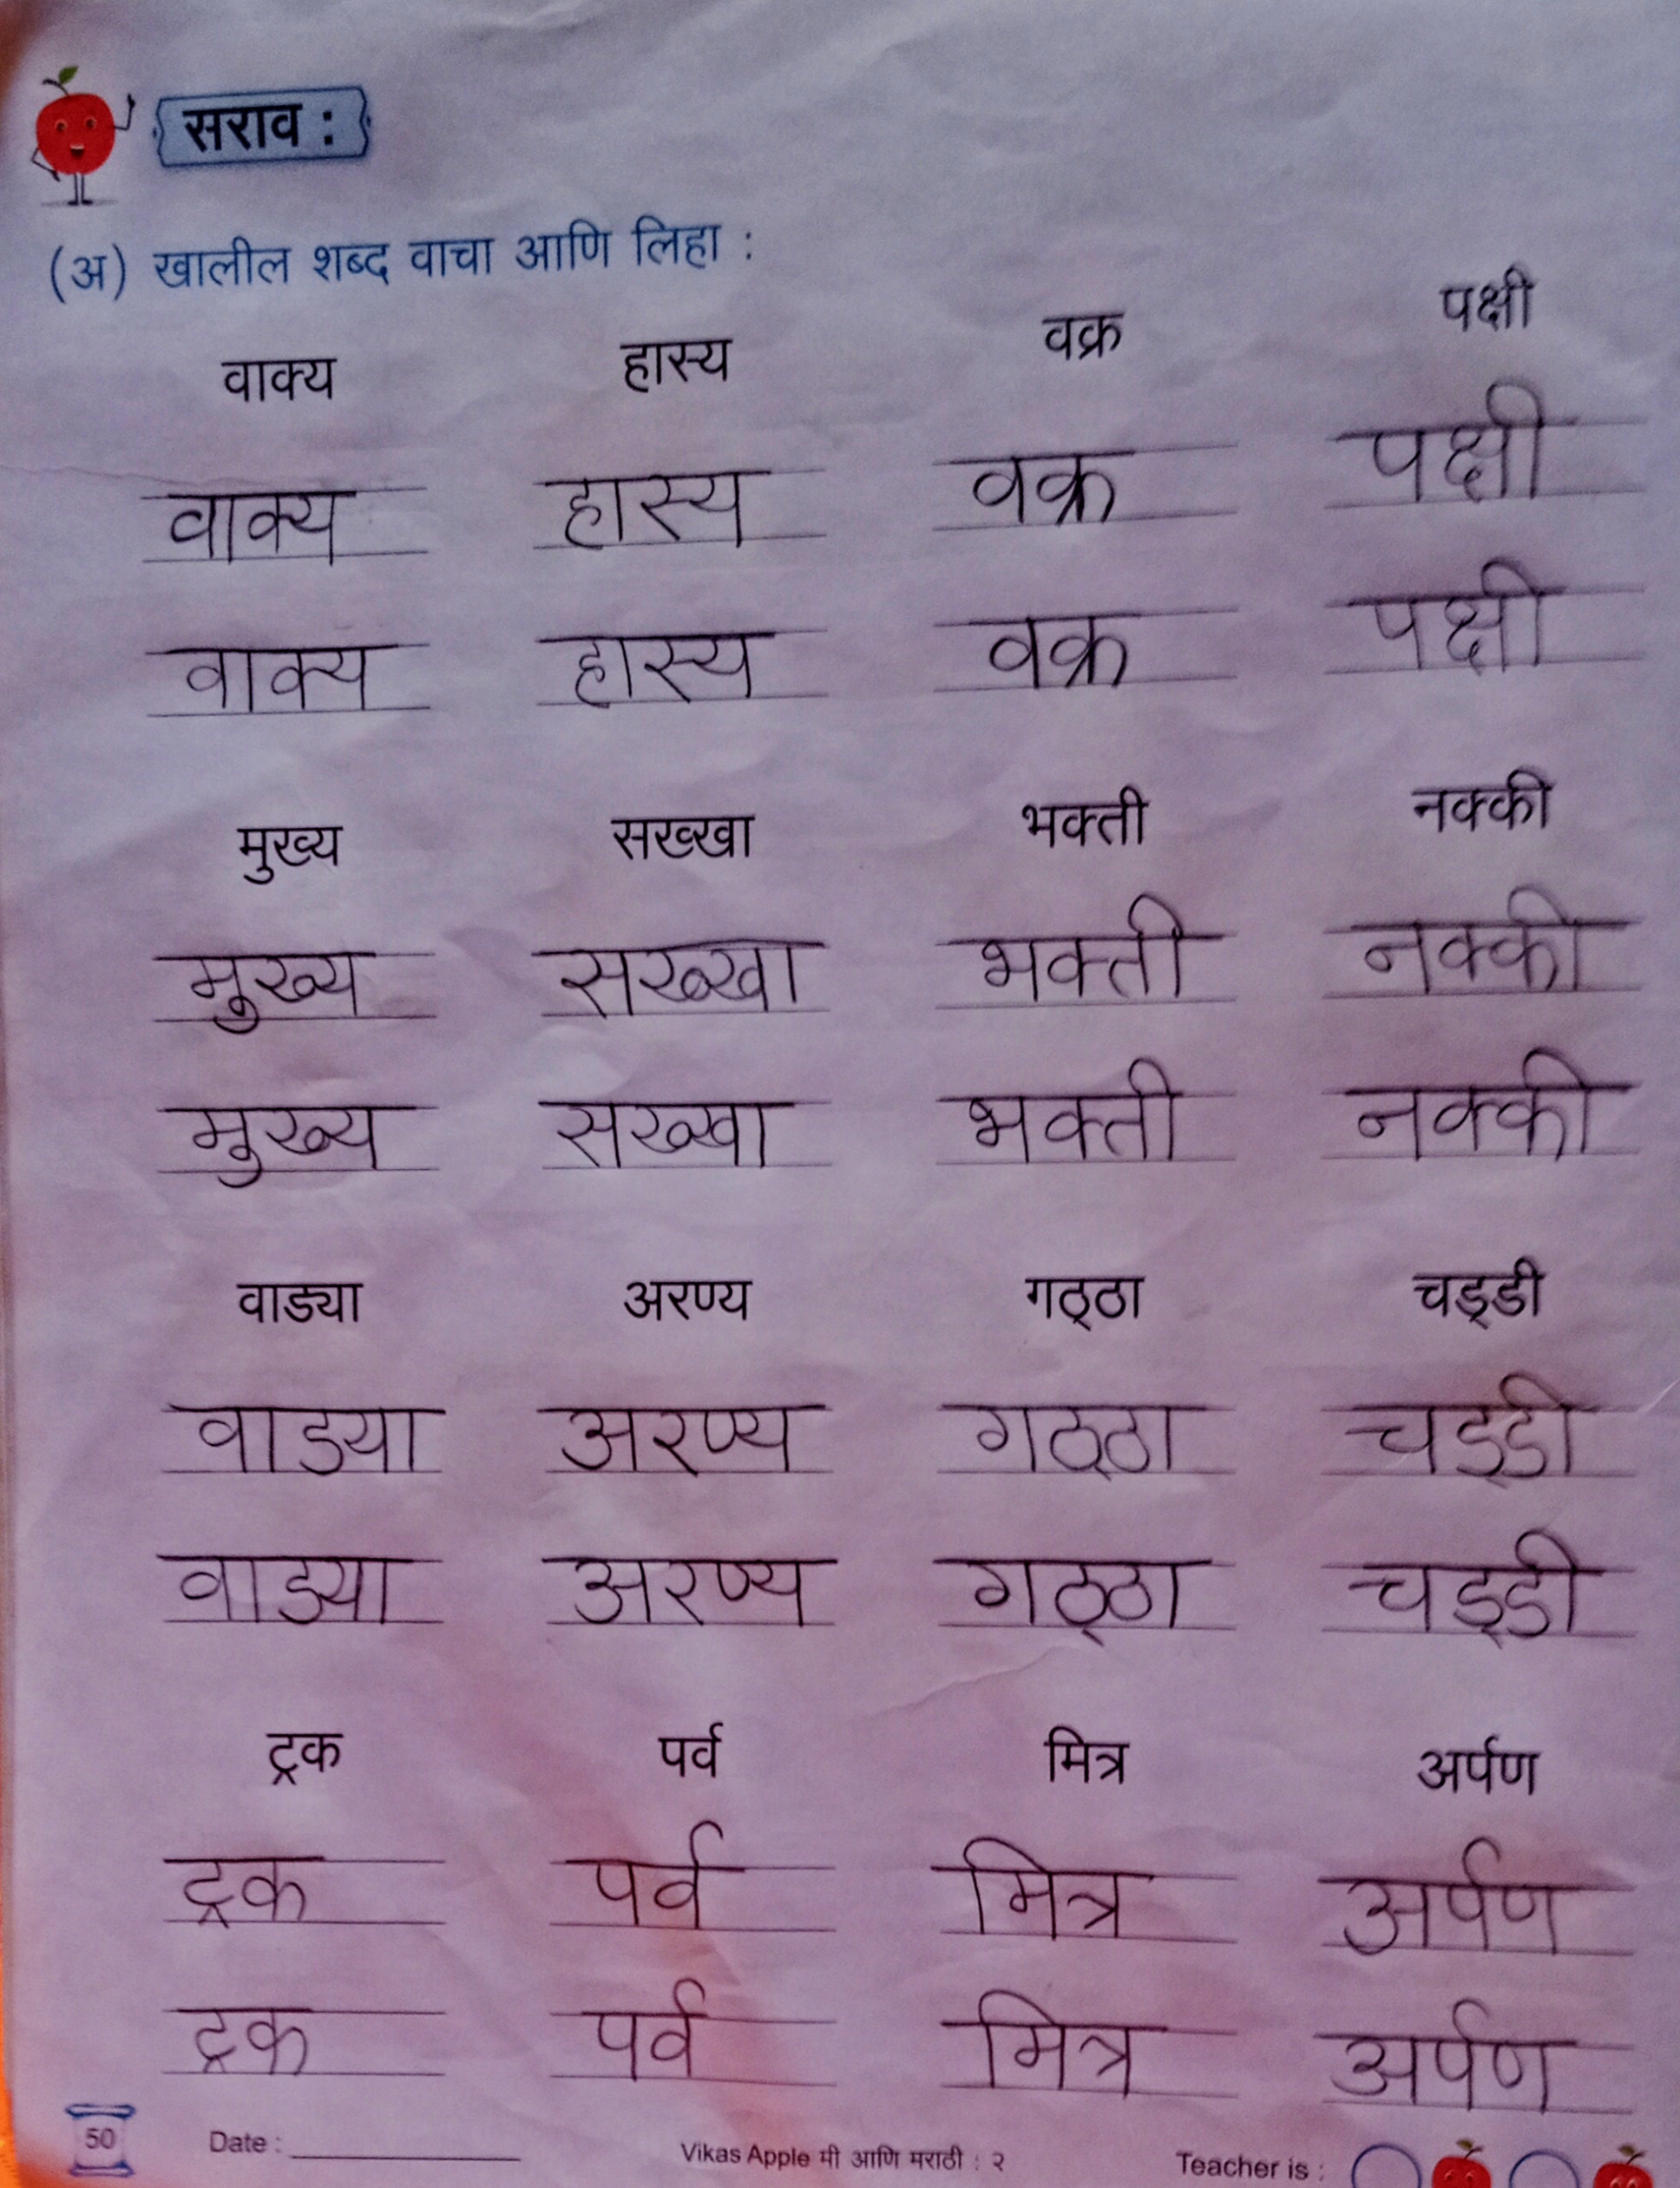 सराव :
(अ) खालील शब्द वाचा आणि लिहा :
वाक्य हास्य वक्र पक्षी
वाक्य हास्य वक्र पक्षी
वाक्य हास्य वक्र पक्षी
मुख्य सख्खा भक्ती नक्की
मुख्य सख्खा भक्ती नक्की
मुख्य सख्खा भक्ती नक्की
वाड्या अरण्य गठ्ठा चड्डी
वाड्या अरण्य गठ्ठा चड्डी
वाड्या अरण्य गठ्ठा चड्डी
ट्रक पर्व मित्र अर्पण
ट्रक पर्व मित्र अर्पण
ट्रक पर्व मित्र अर्पण
50 Date : Vikas Apple मी आणि मराठी : २ Teacher is :